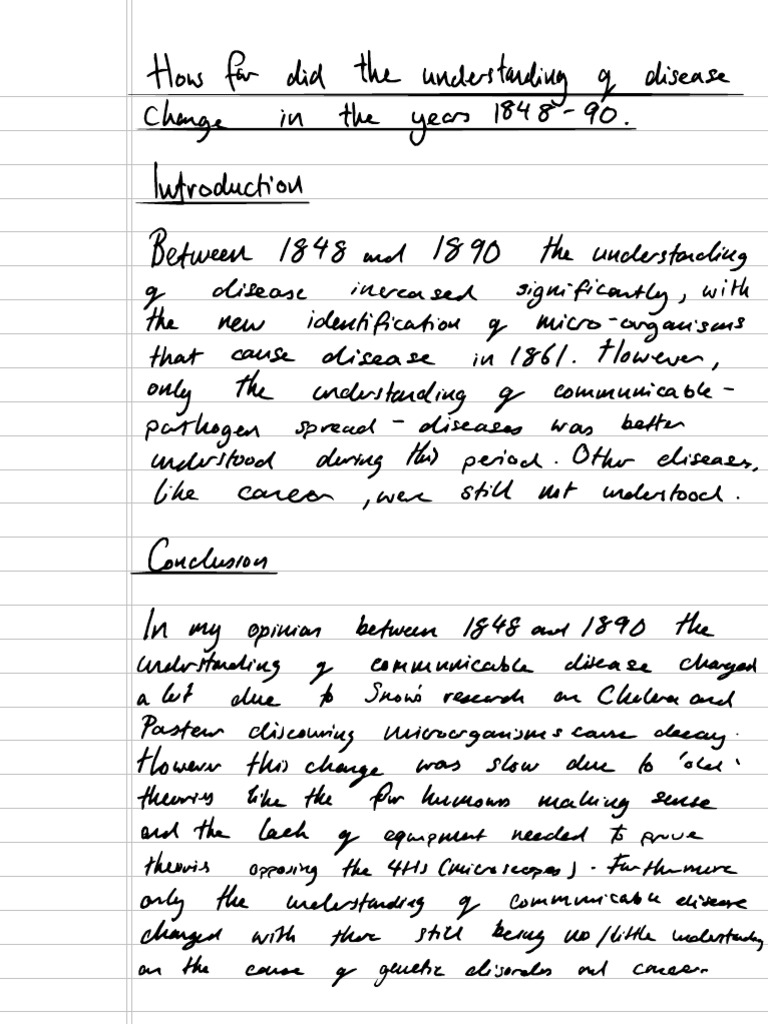 How far did the understanding of disease
change in the years 1848-90.
Introduction
Between 1848 and 1890 the understanding
of disease increased significantly, with
the new identification of micro-organisms
that cause disease in 1861. However,
only the understanding of communicable -
pathogen spread - diseases was better
understood during this period. Other diseases,
like cancer, were still not understood.
Conclusion
In my opinion between 1848 and 1890 the
understanding of communicable disease changed
a lot due to Snow's research on Cholera and
Pasteur discovering microorganisms cause decay.
However this change was slow due to 'old'
theories like the four humours making sense
and the lack of equipment needed to prove
theories opposing the 4Hs (microscopes). Furthermore
only the understanding of communicable disease
changed with there still being no/little understanding
on the cause of genetic disorders and cancer.